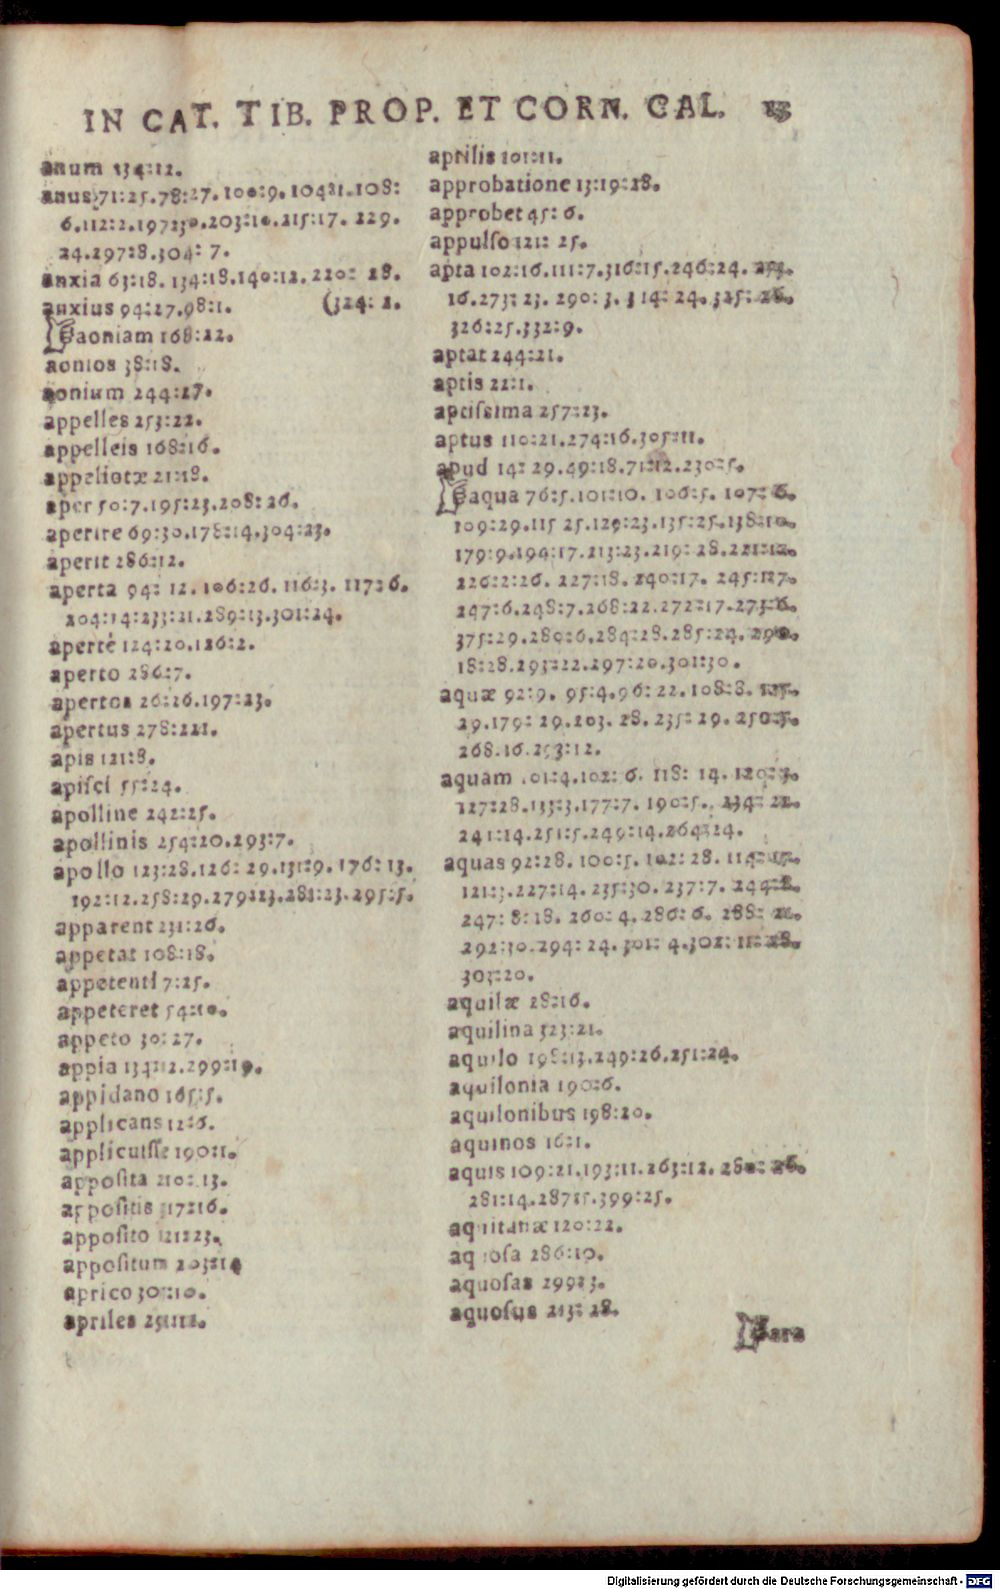 IN CAT. TIB. PROP. ET CORN. GAL. 13
anum 134:12.
anus 71:25.78:27.100:9.104:1.108:
6.112:2.197:30.203:10.215:17. 229.
24.297:8.304: 7.
anxia 63:18. 134:18.140:12. 220: 28.
anxius 94:27.98:1. (324: 2.
☞aoniam 168:22.
aonios 38:18.
aonium 244:27.
appelles 253:22.
appelleis 168:16.
appeliotæ 21:18.
aper 50:7.195:23.208:26.
aperire 69:30.178:14.304:23.
aperit 286:12.
aperta 94: 12. 106:26. 116:3. 117:6.
204:14:233:21.289:13.301:24.
aperté 124:20.126:2.
aperto 286:7.
apertos 26:26.197:23.
apertus 278:221.
apis 121:8.
apisci 55:24.
apolline 242:25.
apollinis 254:20.293:7.
apollo 123:28.126: 29.131:9. 176: 13.
192:12.258:29.279:23.283:23.295:5.
apparent 231:26.
appetat 108:18.
appetenti 7:25.
appeteret 54:10.
appeto 30:27.
appia 134:12.299:19.
appidano 165:5.
applicans 12:6.
applicuisse 190:1.
apposita 210: 13.
appositis 17:16.
apposito 121:23.
appositum 203:14
aprico 30:10.
apriles 231:12.
aprilis 101:11.
approbatione 13:19:28.
approbet 45: 6.
appulso 121: 25.
apta 102:16.111:7.316:15.246:24. 253.
16.273: 23. 290: 3. 314: 24. 325: 26.
326:25.332:9.
aptat 244:21.
aptis 22:1.
aptissima 257:23.
aptus 110:21.274:16.305:11.
apud 14: 29.49:18.71:12.230:5.
☞aqua 76:5.101:10. 106:5. 107: 6.
109:29.115 25.129:23.135:25.138:10.
179:9.194:17.213:23.219: 28.221:12.
226:2:26. 227:18. 240:17. 245:17.
247:6.248:7.268:22.272:17.273:6.
375:29.280:6.284:28.285:24. 290.
18:28.293:22.297:20.301:30.
aquæ 92:9. 95:4.96: 22.108:8. 125.
29.179: 29.203. 28. 235: 29. 250:5.
268.16.293:12.
aquam 101:4.102: 6. 118: 14. 120:3.
127:28.133:3.177:7. 190:5. 234: 22.
241:14.251:5.249:14.264:24.
aquas 92:28. 100:5. 102: 28. 114:15.
121:3.227:14. 235:30. 237:7. 244:8.
247: 8:18. 260: 4. 286: 6. 288: 21.
292:30.294: 24. 301: 4.302: 11:28.
303:20.
aquilæ 28:16.
aquilina 323:21.
aquilo 198:13.249:26.251:24.
aquilonia 190:6.
aquilonibus 198:20.
aquinos 16:1.
aquis 109:21.193:11.263:12. 280: 26.
281:14.287:5.399:25.
aquitanæ 120:22.
aquosa 286:10.
aquosas 299:3.
aquosus 213: 28.
☞ara
Digitalisierung gefördert durch die Deutsche Forschungsgemeinschaft - DFG